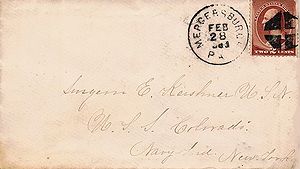 MERCERSBURG
FEB
28
PA
TWO CENTS
Surgeon E. Kershner U.S.N.
U. S. S. Colorado
Navy Yard, New York